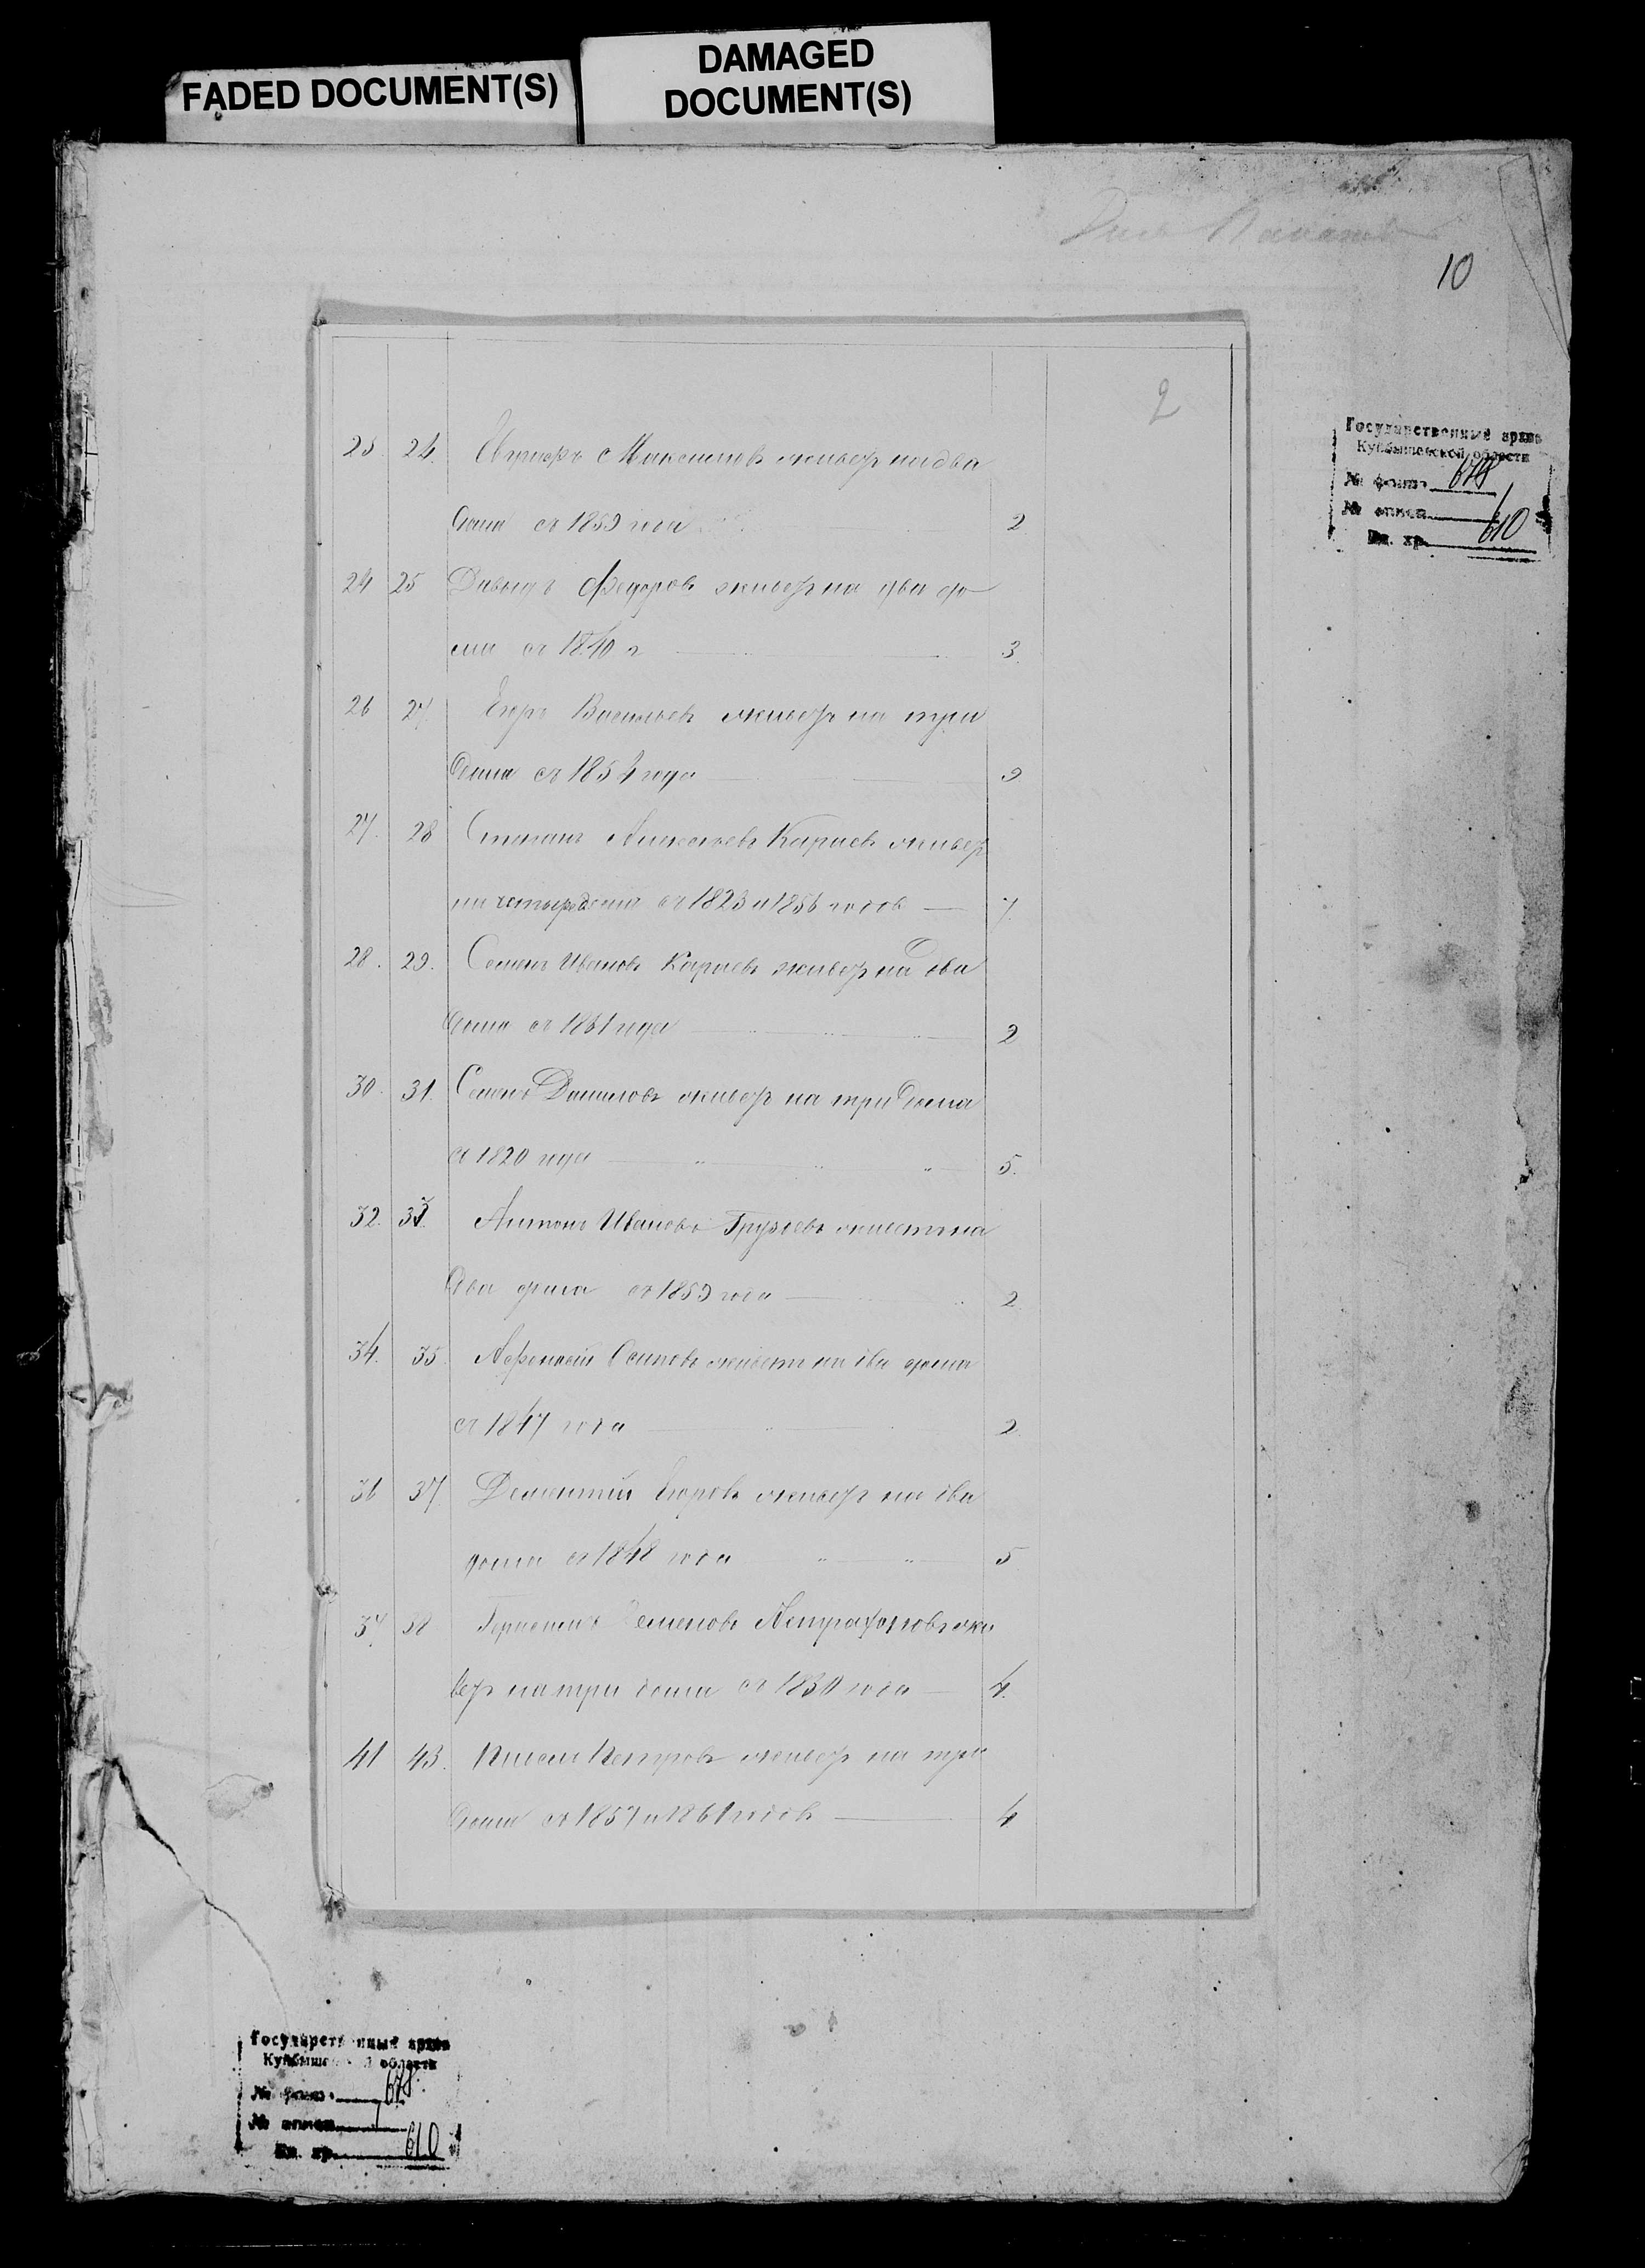 FADED DOCUMENT(S)
DAMAGED
DOCUMENT(S)
10
2
Государственный архив
Куйбышевской области
№ фонда 678
№ описи 1
Ед. хр. 610
23 24. Максимовъ живетъ на два
дома съ 1859 года 2
24 25 Давыдъ Федоровъ живетъ на два до
ма съ 1840 г 3.
26 27. Егоръ Васильевъ живетъ на три
дома съ 1854 года 9
27. 28 Степанъ Алексеевъ Карпевъ живетъ
на четыре дома съ 1823 и 1856 годовъ 7.
28. 29. Семенъ Ивановъ Карпевъ живетъ на два
дома съ 1861 года 2
30. 31. Семенъ Даниловъ живетъ на три дома
съ 1820 года 5.
32. 33. Антонъ Ивановъ живетъ на
два дома съ 1859 года 2
34. 35. Афонасий Осиповъ живетъ на два дома
съ 1847 года 2
36 37. Дементий Егоровъ живетъ на два
дома съ 1848 года 5
37. 38 Семеновъ жи
ветъ на три дома съ 1830 года 4.
41 43. Петровъ живетъ на три
дома съ 1857 и 1861 годовъ 4
Государственный архив
Куйбышевской области
№ фонда 678
№ описи 1
Ед. хр. 610